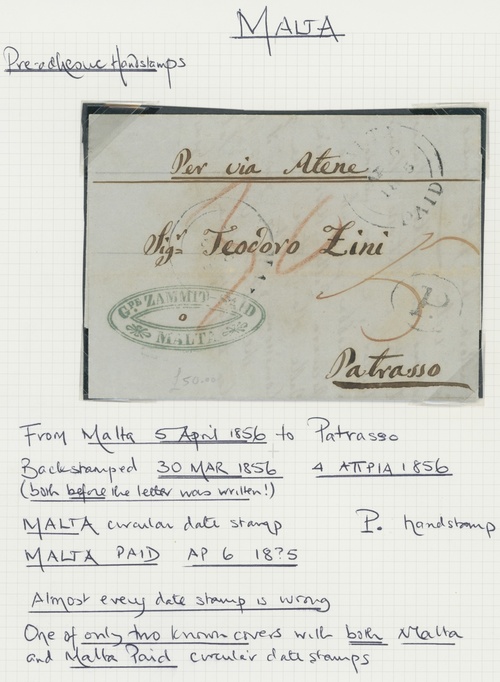 MALTA
Pre-adhesive Handstamps
Per via Atene
PAID
Sigr Teodoro Zini
GPE ZAMMIT SAID
MALTA
P
£50.00
Patrasso
From Malta 5 April 1856 to Patrasso
Backstamped 30 MAR 1856 4 ΑΠΡΙΛ 1856
(both before the letter was written!)
MALTA circular date stamp P. handstamp
MALTA PAID AP 6 18?5
Almost every date stamp is wrong
One of only two known covers with both Malta
and Malta Paid circular date stamps